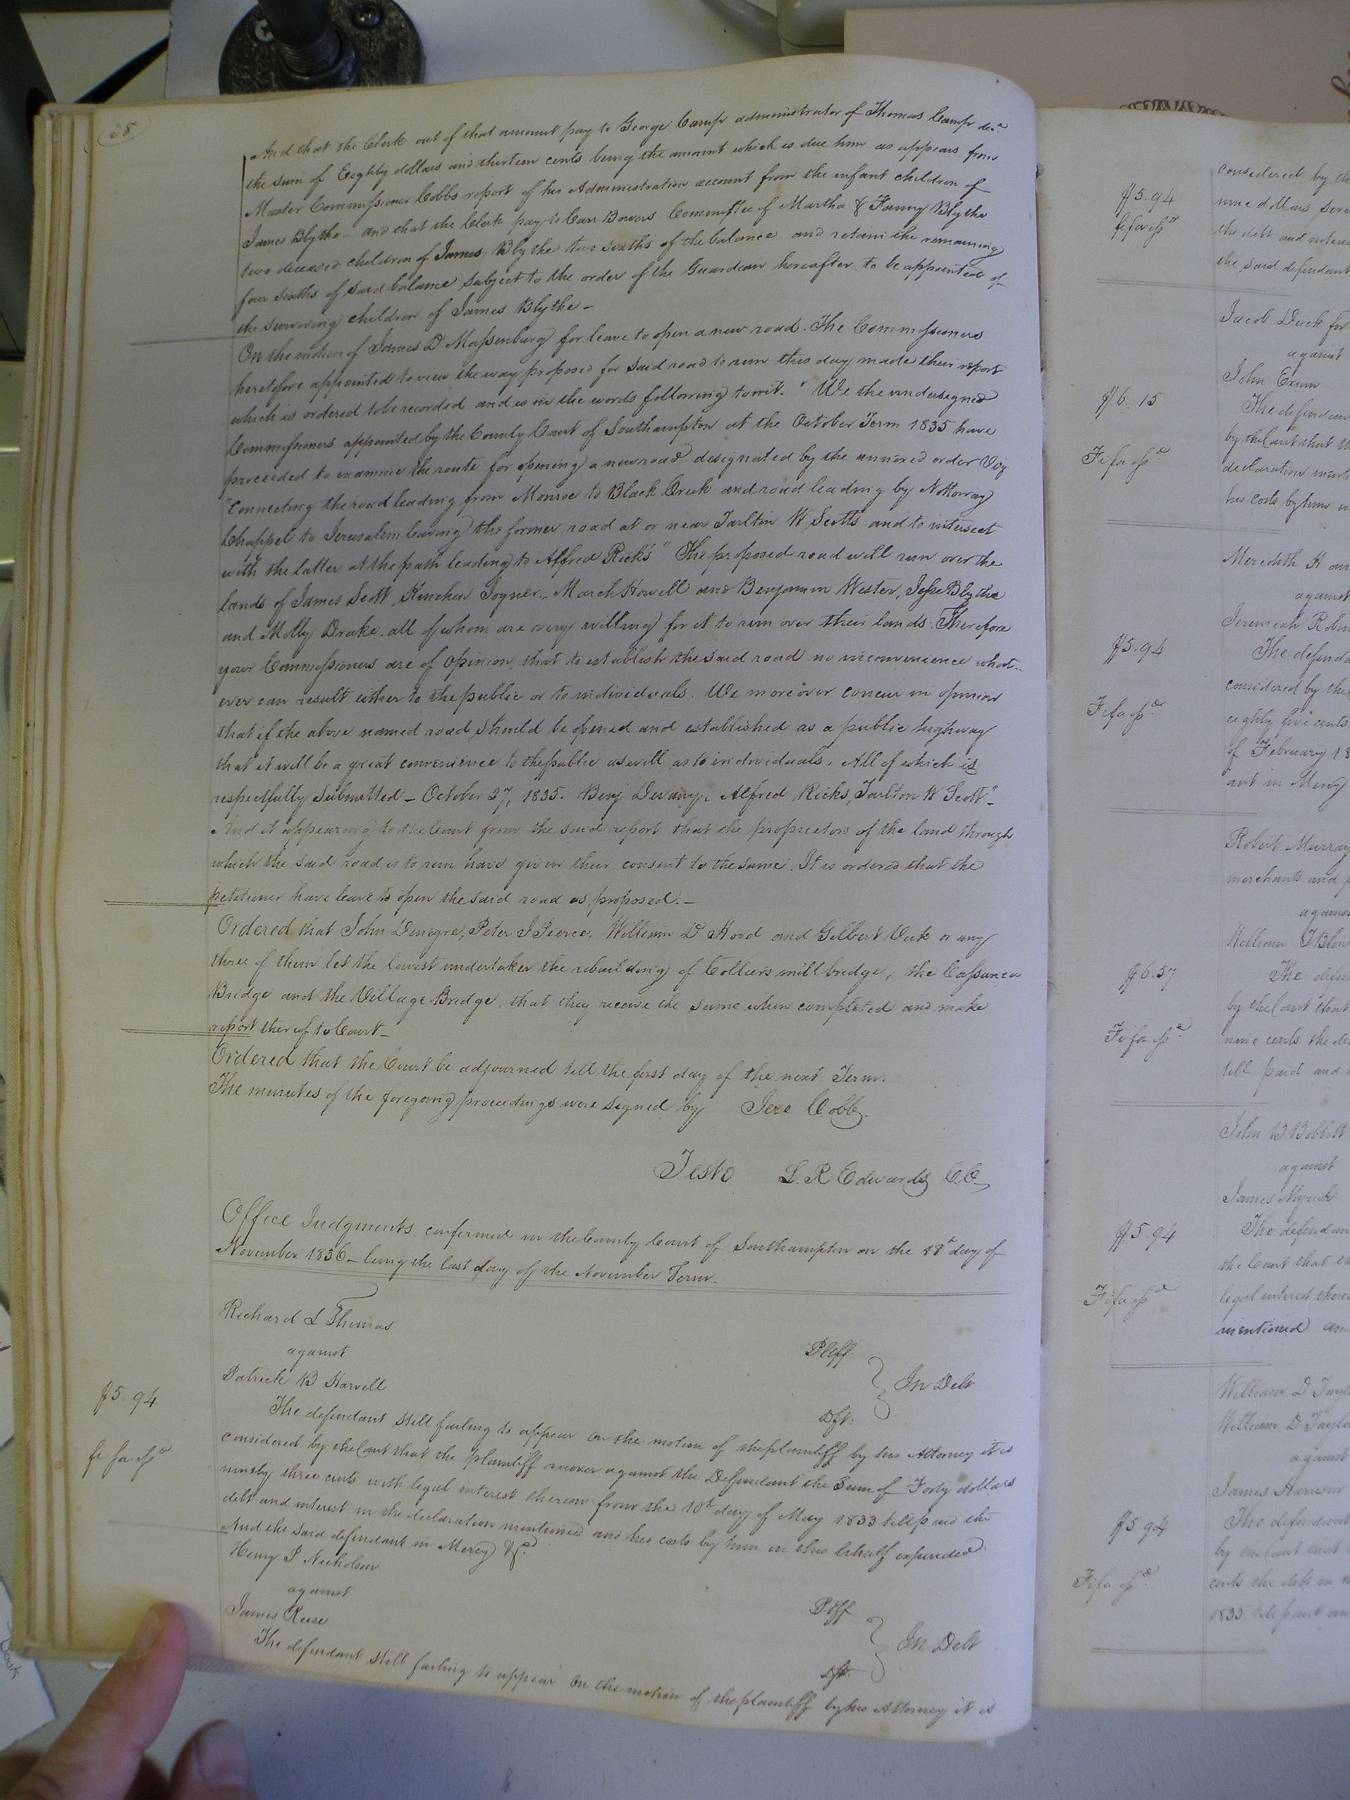 38
And that the Clerk out of that amount pay to George Camp administrator of Thomas Camp decd
the sum of Eighty dollars and thirteen cents being the amount which is due him as appears from
Master Commissioner Cobbs report of his Administration account from the infant children of
James Blythe - and that the Clerk pay to Carr Bowers Committee of Martha & Fanny Blythe
two deceased children of James Blythe two sixths of the balance and retain the remaining
four sixths of said balance subject to the order of the Guardian hereafter to be appointed of
the surviving children of James Blythe -
On the motion of James D Massenburg for leave to open a new road. The Commissioners
heretofore appointed to view the way proposed for said road to run this day made their report
which is ordered to be recorded and is in the words following to wit. " We the undersigned
Commissioners appointed by the County Court of Southampton at the October Term 1835 have
proceeded to examine the route for opening a new road designated by the annexed order Viz
"Connecting the road leading from Monroe to Black Creek and road leading by Nottoway
Chappel to Jerusalem leaving the former road at or near Tarlton W Scotts and to intersect
with the latter at the path leading to Alfred Ricks" The proposed road will run over the
lands of James Scott, Kinchen Joyner, March Howell and Benjamin Wester, Jesse Blythe
and Molly Drake all of whom are very willing for it to run over their lands. Therefore
your Commissioners are of opinion that to establish the said road no inconvenience what-
ever can result either to the public or to individuals. We moreover concur in opinion
that if the above named road should be opened and established as a public highway
that it will be a great convenience to the public as well as to individuals. All of which is
respectfully Submitted - October 27, 1835. Benj Devany, Alfred Ricks, Tarlton W Scott"-
And it appearing to the Court from the said report that the proprietors of the land through
which the said road is to run have given their consent to the same. It is ordered that the
petitioner have leave to open the said road as proposed. -
Ordered that John Denegre, Peter J Pierce, William D Hood and Gilbert or any
three of them let the lowest undertaker the rebuilding of Colliers mill bridge, the
Bridge and the Village Bridge, that they receive the same when completed and make
report thereof to Court -
Ordered that the Court be adjourned till the first day of the next Term.
The minutes of the foregoing proceedings were signed by Jere Cobb.
Teste L. R Edwards C.C.
Office Judgments confirmed in the County Court of Southampton on the day of
November 1836 - being the last day of the November Term.
Richard L Thomas Pltff.
against In Debt
Patrick B Harvell Dft.
$5.94 The defendant still failing to appear On the motion of the plaintiff by his Attorney it is
considered by the Court that the plaintiff recover against the Defendant the Sum of Forty dollars
fi fa issd ninety three cents with legal interest thereon from the 10th day of May 1833 till paid the
debt and interest in the declaration mentioned and his costs by him in this behalf expended.
And the said defendant in Mercy &c.
Henry P Nicholson Pltff
against In Debt
James Reese Dft.
The defendant still failing to appear On the motion of the plaintiff by his Attorney it is
considered by the
$5.94 nine dollars
fi fa issd the debt and interest
the said defendant
Jacob Duck for
against
John Exum
$6.15 The defendant
by the Court that
Fi fa issd declaration
his costs by him
Meredith H
against
Jeremiah
$5.94 The defendant
considered by the
Fi fa issd eighty five cents
of February 18
ant in Mercy
Robert Murray
merchants and
against
William
$6.57 The
by the Court that
Fi fa issd nine cents the
till paid and
John
against
James
$5.94 The defendant
the Court that
Fi fa issd legal interest
mentioned and
William D Taylor
William D Taylor
against
James Harrison
$5.94 The defendant
by the Court that
Fi fa issd cents the debt
1835 till paid